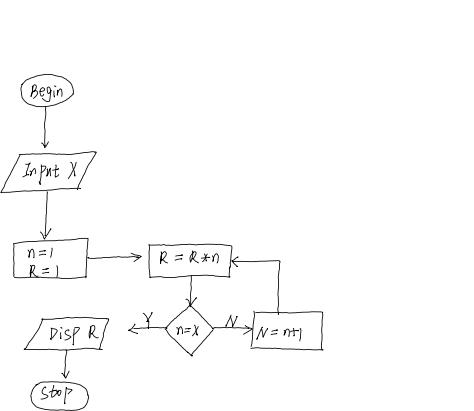 Begin
Input X
n=1
R=1
R = R*n
Y
n=x
N
N=n+1
Disp R
Stop